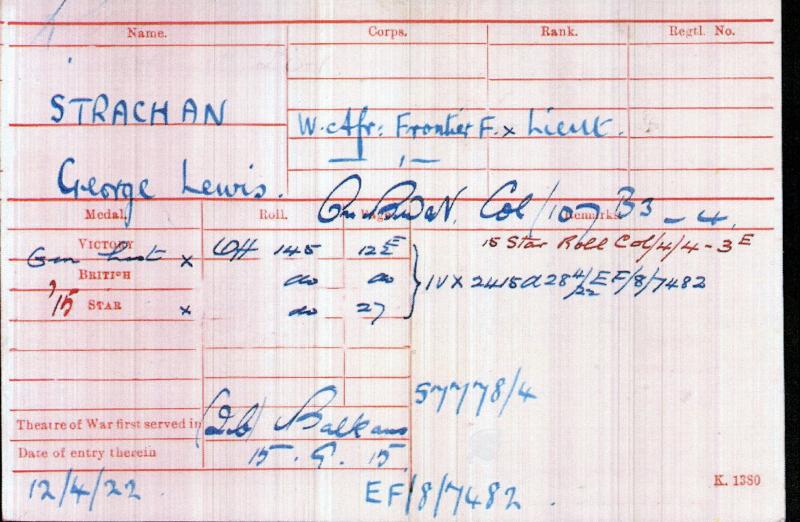 Name. Corps. Rank. Regtl. No.
STRACHAN
W. Afr: Frontier F. x Lieut.
George Lewis.
Col/107 B3 - 4.
Medal. Roll. Page. Remarks.
VICTORY x OH 145 12E 15 Star Roll Col/4/4-3E
BRITISH do do IVX 2415a 28 4/22 EF/8/7482
'15 STAR x do 27
57778/4
Theatre of War first served in (2b) Balkans
Date of entry therein 15. 9. 15
12/4/22 EF/8/7482. K. 1380